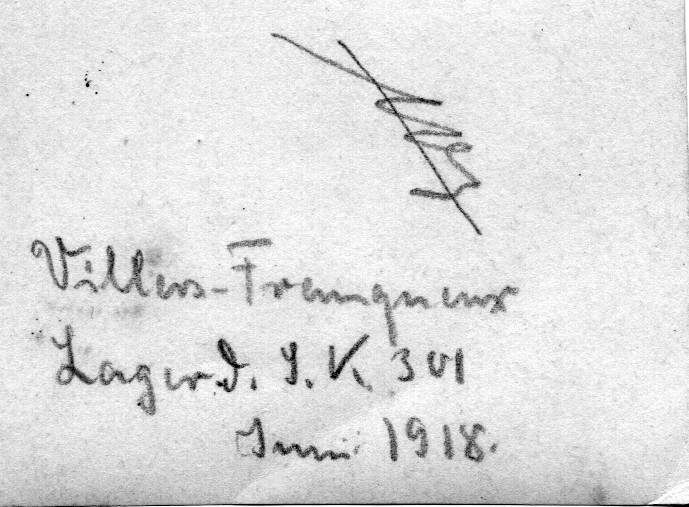 Villers-Franqueux
Lager d. J. K. 301
Juni 1918.